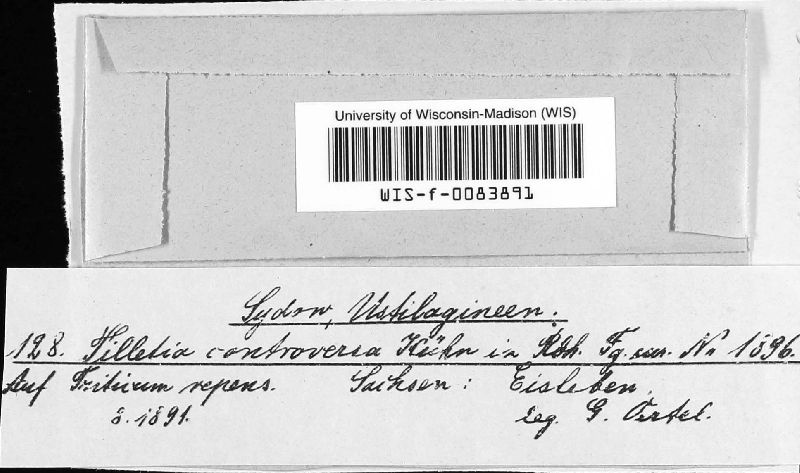 University of Wisconsin-Madison (WIS)
WIS-f-0083891
Sydow, Ustilagineen.
128. Tilletia controversa Kühn in Rbh. Fg. eur. Nr 1896.
Auf Triticum repens. Sachsen: Eisleben.
8. 1891. leg. G. Oertel.